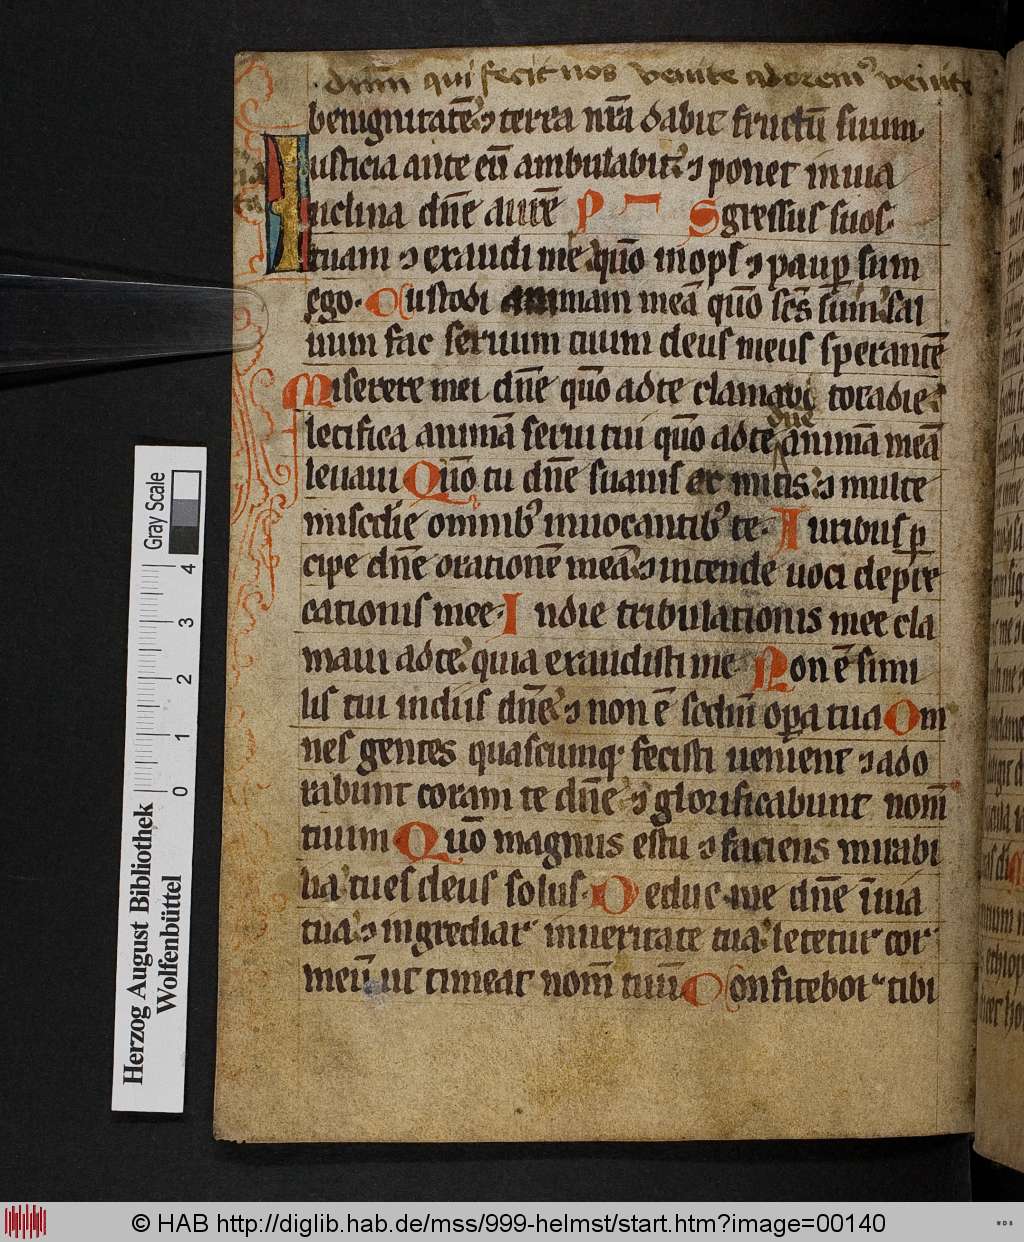 dnm qui fecit nos venite adorem9 venite
benignitatē ⁊ terra nr̄a dabit fructū suum.
Iusticia ante eū ambulabit ⁊ ponet in uia
Inclina dn̄e aurē P gressus suos.
tuam ⁊ exaudi me quō inops ⁊ paup sum
ego. Custodi animam meā quō sc̄s sum sal
uum fac seruum tuum deus meus sperantē
Miserere mei dn̄e quō ad te clamaui tota die
letifica animā serui tui quō ad te dn̄e animā meā
leuaui Quō tu dn̄e suauis et mitis ⁊ multe
miscd̄ie omnib9 inuocantib9 te. Auribus p
cipe dn̄e orationē meā ⁊ intende uoci depre
cationis mee. In die tribulationis mee cla
maui ad te quia exaudisti me Non ē simi
lis tui in diis dn̄e ⁊ non ē scd̄m opa tua Om
nes gentes quascumq fecisti uenient ⁊ ado
rabunt coram te dn̄e ⁊ glorificabunt nom̄
tuum Quō magnus es tu ⁊ faciens mirabi
lia tu es deus solus. Deduc me dn̄e ī uia
tua ⁊ ingrediar in ueritate tua letetur cor
meū ut timeat nom̄ tuū Confitebor tibi
Gray Scale
4
3
2
1
0
Herzog August Bibliothek
Wolfenbüttel
© HAB http://diglib.hab.de/mss/999-helmst/start.htm?image=00140